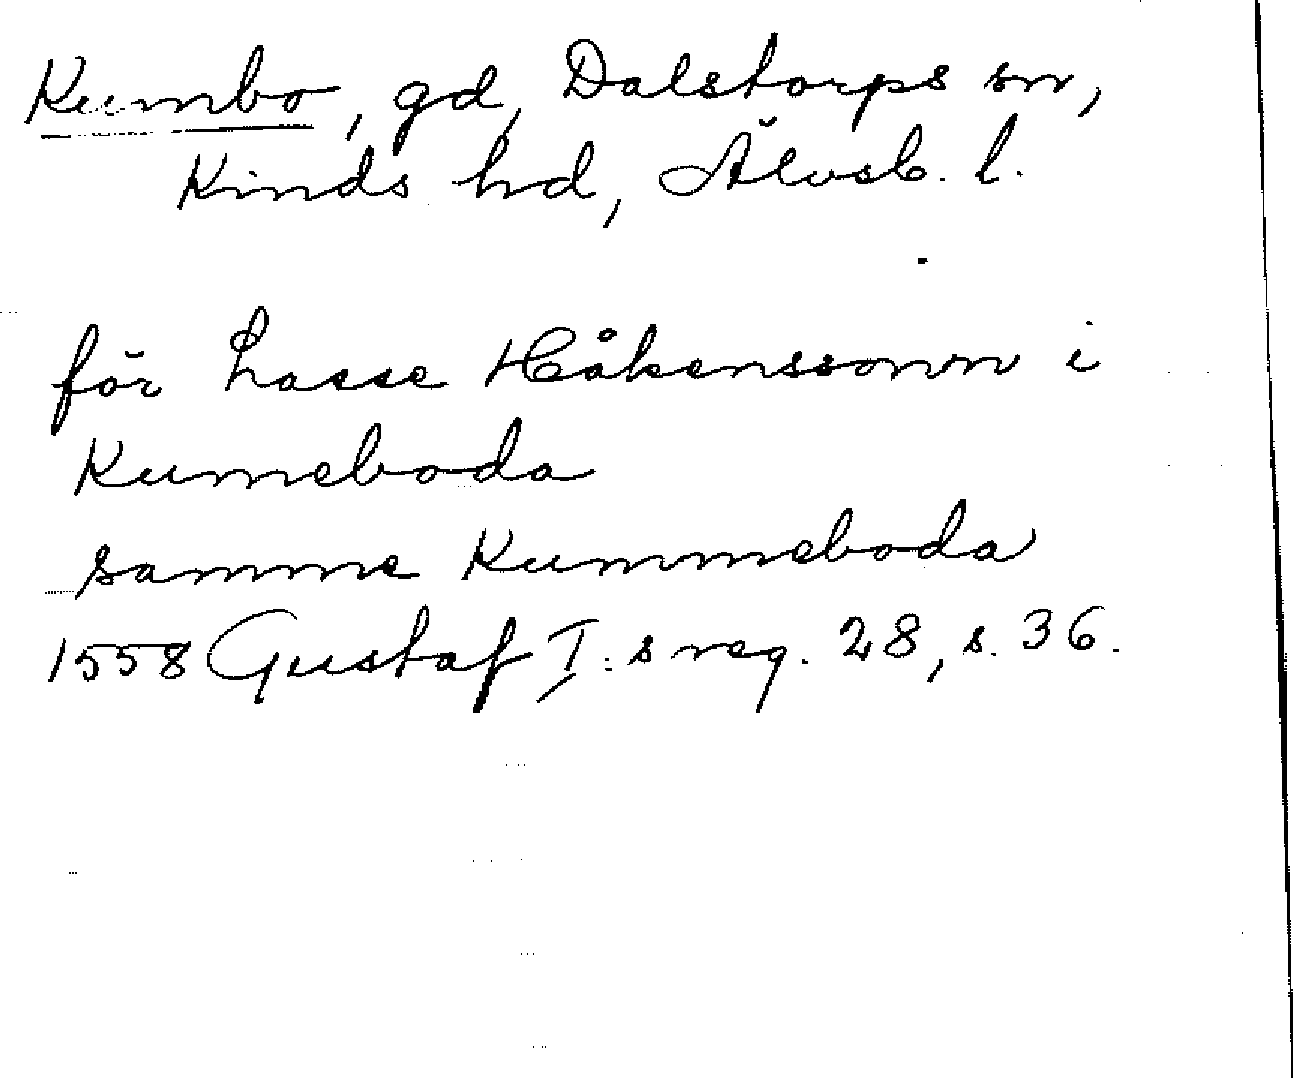 Kumbo, gd, Dalstorps sn,
Kinds hd, Älvsb. l.
för Lasse Håkenssonn i
Kumeboda
samme Kummeboda
1558 Gustaf I:s reg. 28, s. 36.